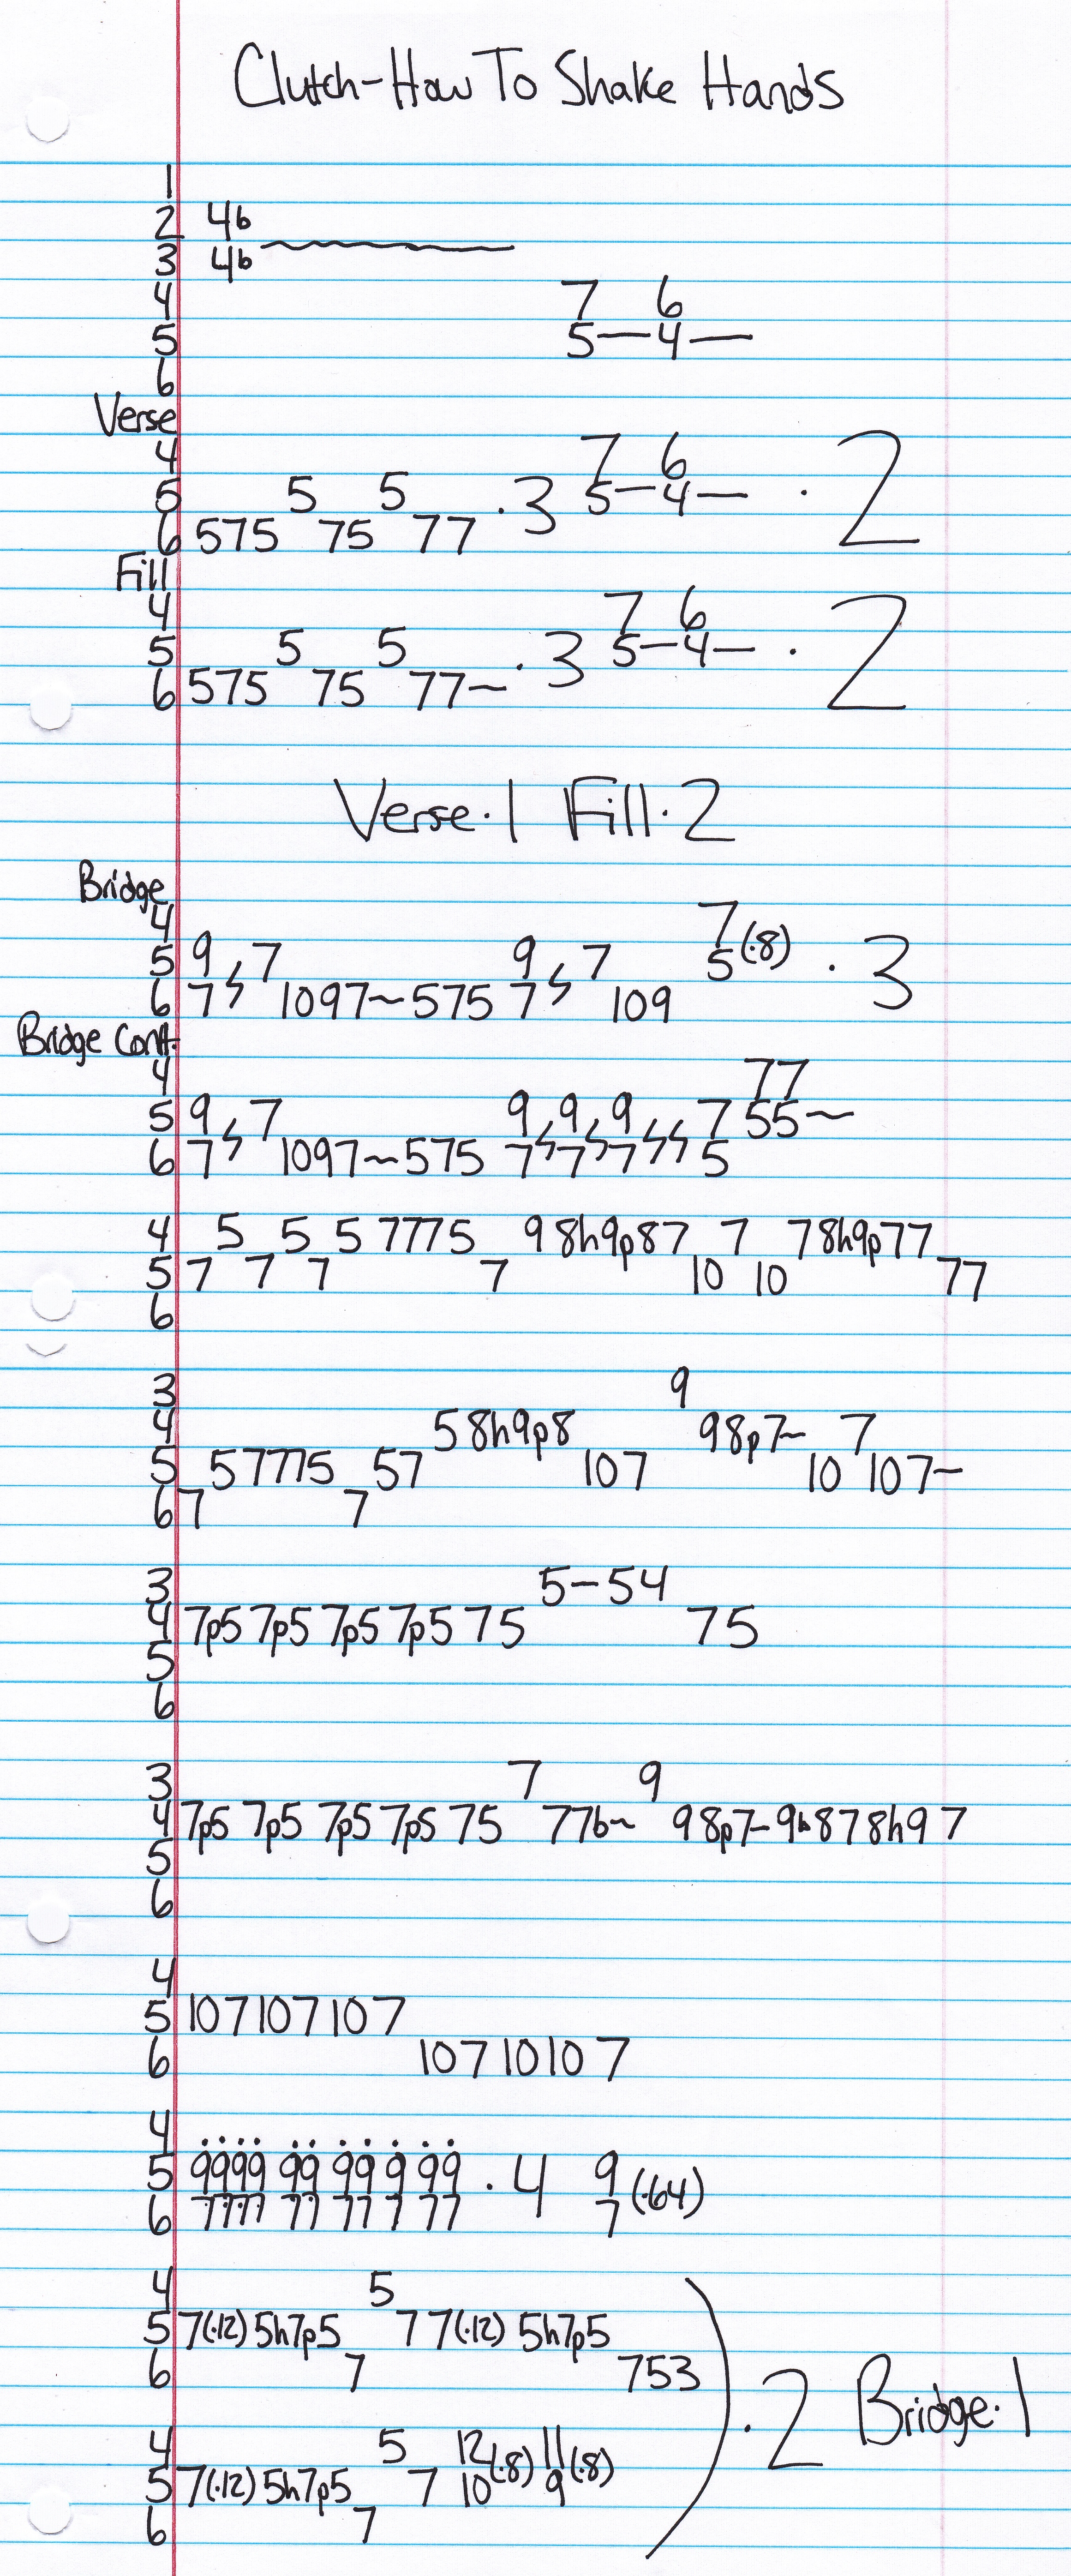 Clutch-How To Shake Hands
1
2 4b
3 4b
4 7 6
5 5—4—
6
Verse
4 7 6
5 5 5 ·3 5—4— ·2
6 575 75 77
Fill
4 7 6
5 5 5 ·3 5—4— ·2
6 575 75 77~
Verse·1 Fill·2
Bridge
4 7
5 9 7 9 7 5(·8) ·3
6 7 1097~575 7 109
Bridge Cont.
4 77
5 9 7 9 9 9 7 55~
6 7 1097~575 7 7 7 5
4 5 5 5 7775 9 8h9p87 7 78h9p77
5 7 7 7 7 10 10 77
6
3 9
4 5 8h9p8 98p7~ 7
5 57775 57 107 10 107~
6 7 7
3 5-54
4 7p5 7p5 7p5 7p5 75 75
5
6
3 7 9
4 7p5 7p5 7p5 7p5 75 77b~ 98p7-9b878h97
5
6
4
5 107107107
6 10710107
4
5 9999 99 99 9 99 ·4 9 (·64)
6 7777 77 77 7 77 7
4 5
5 7(·12) 5h7p5 77(·12) 5h7p5
6 7 753
) ·2 Bridge·1
4 5 12(·8) 11(·8)
5 7(·12) 5h7p5 7 10 9
6 7